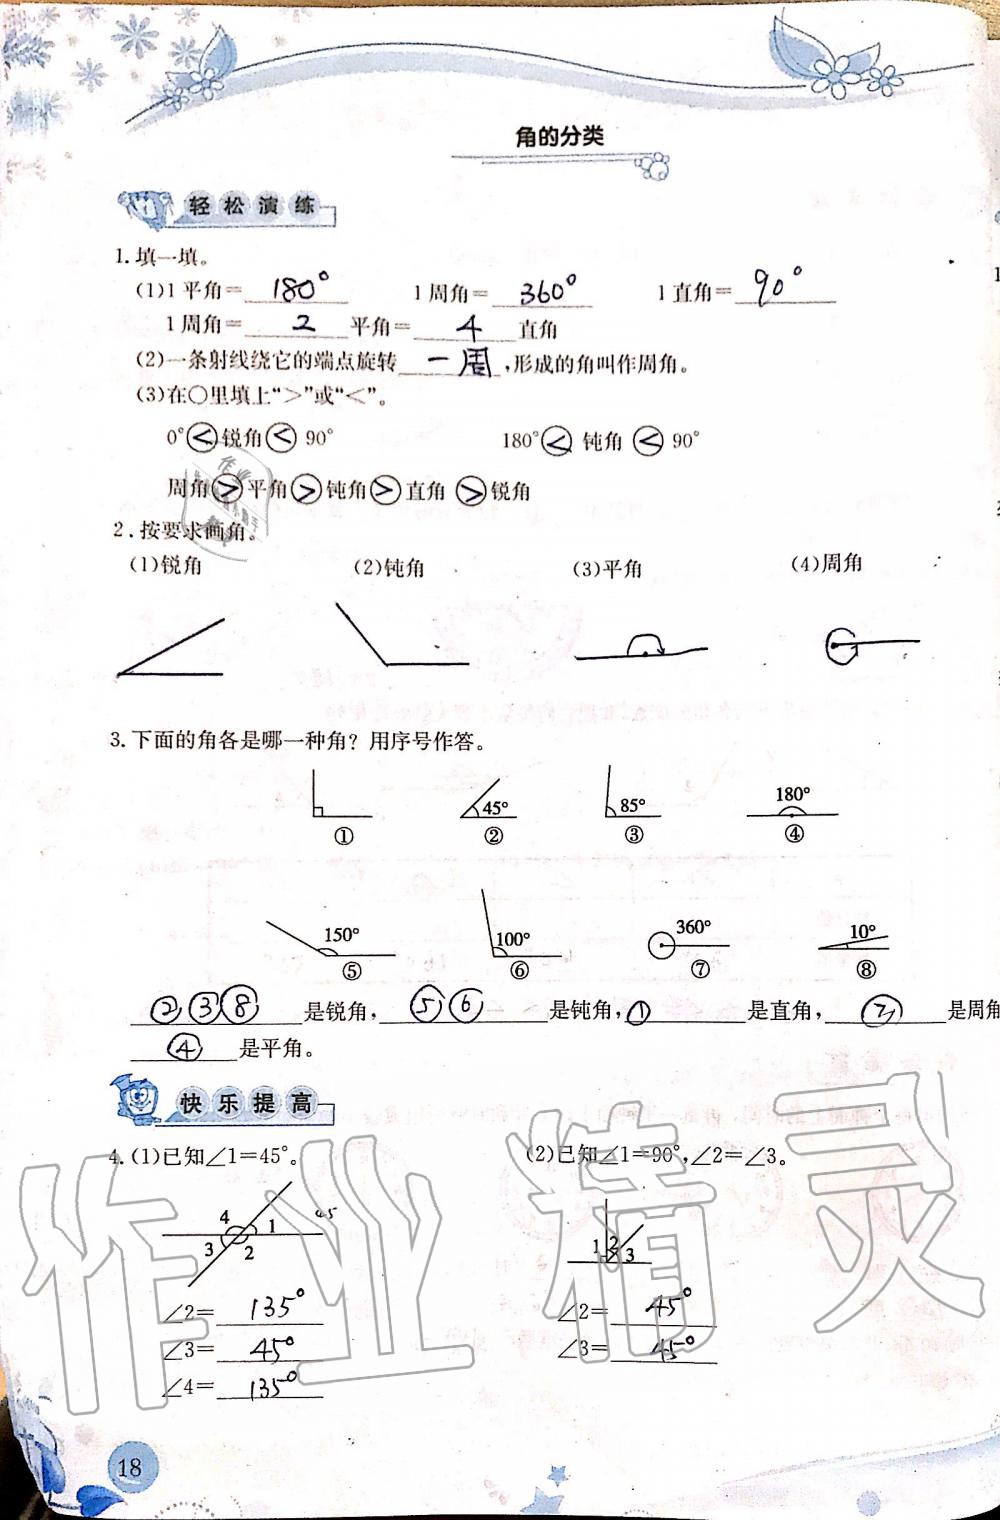 角的分类
轻松演练
1.填一填。
(1)1平角=180° 1周角=360° 1直角=90°
1周角=2平角=4直角
(2)一条射线绕它的端点旋转一周,形成的角叫作周角。
(3)在○里填上“>”或“<”。
0°<锐角<90° 180°<钝角<90°
周角>平角>钝角>直角>锐角
2.按要求画角。
(1)锐角 (2)钝角 (3)平角 (4)周角
3.下面的角各是哪一种角?用序号作答。
45° 85° 180°
① ② ③ ④
150° 100° 360° 10°
⑤ ⑥ ⑦ ⑧
②③⑧是锐角,⑤⑥是钝角,①是直角,⑦是周角
④是平角。
快乐提高
4.(1)已知∠1=45°。 (2)已知∠1=90°,∠2=∠3。
4 1 45
3 2
1 2 3
∠2=135° ∠2=45°
∠3=45° ∠3=45°
∠4=135°
18
作业精灵